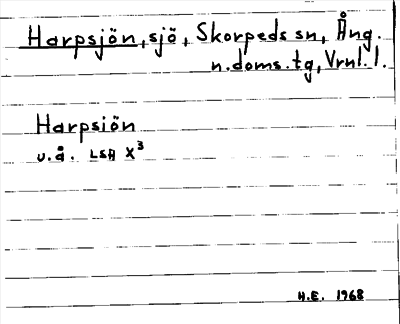 Harpsjön, sjö, Skorpeds sn, Ång.
n.doms.tg, Vrnl. l.
Harpsiön
u.å. LSA X³
H.E. 1968